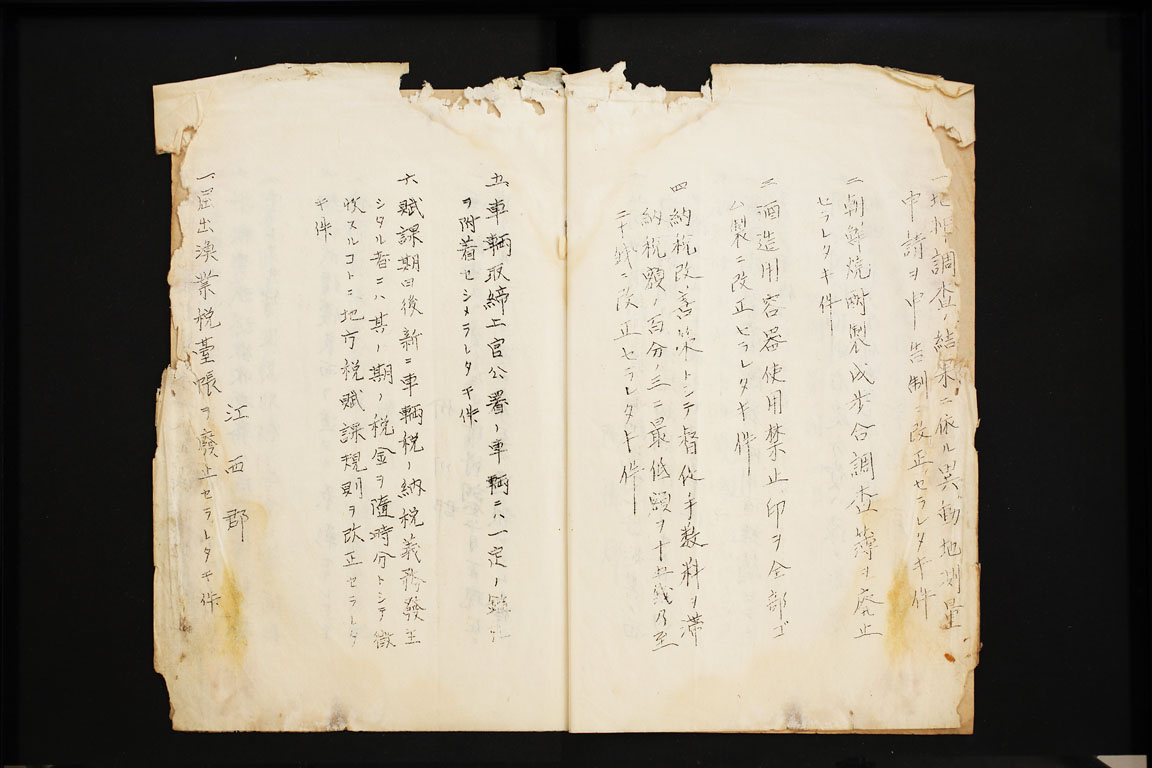 一、地押調査ノ結果ニ依ル異動地測量
申請ヲ申告制ニ改正セラレタキ件
二、朝鮮焼酎製成歩合調査簿ヲ廃止
セラレタキ件
三、酒造用容器使用禁止印ヲ全部ゴ
ム製ニ改正セラレタキ件
四、納税改善策トシテ督促手数料ヲ滞
納税額ノ百分ノ三ニ最低額ヲ十五銭乃至
二十銭ニ改正セラレタキ件
五、車輛取締上官公署ノ車輛ニハ一定ノ
ヲ附着セシメラレタキ件
六、賦課期日後新ニ車輛税ノ納税義務發生
シタル者ニハ其ノ期ノ税金ヲ隨時分トシテ徴
收スルコトニ地方税賦課規則ヲ改正セラレタ
キ件
江西郡
一、届出漁業税臺帳ヲ廢止セラレタキ件